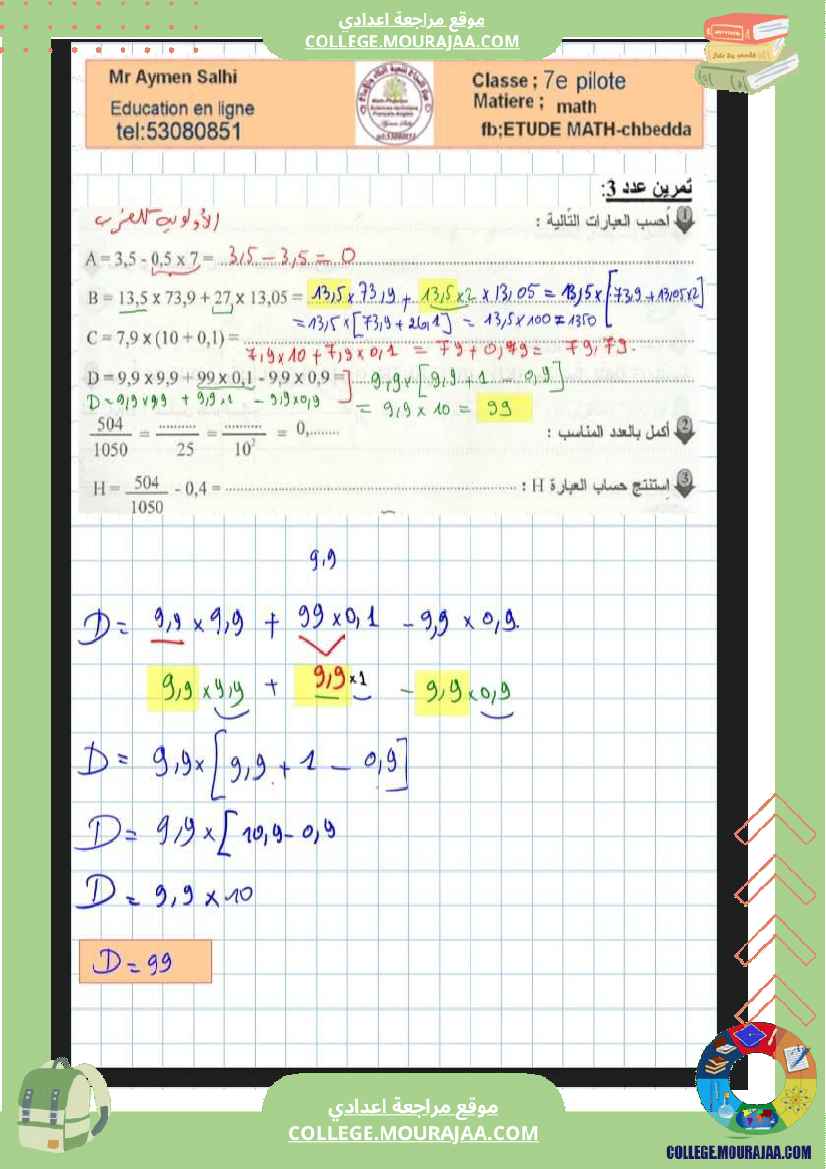 موقع مراجعة اعدادي
COLLEGE.MOURAJAA.COM
Mr Aymen Salhi
Education en ligne
tel:53080851
Classe ; 7e pilote
Matiere ; math
fb;ETUDE MATH-chbedda
تمرين عدد 3:
1 أحسب العبارات التالية :
الأولوية للضرب
A = 3,5 - 0,5 x 7 = 3,5 - 3,5 = 0
B = 13,5 x 73,9 + 27 x 13,05 = 13,5 x 73,9 + 13,5 x 2 x 13,05 = 13,5 x [73,9 + 13,05 x 2]
= 13,5 x [73,9 + 26,1] = 13,5 x 100 = 1350
C = 7,9 x (10 + 0,1) =
7,9 x 10 + 7,9 x 0,1 = 79 + 0,79 = 79,79.
D = 9,9 x 9,9 + 99 x 0,1 - 9,9 x 0,9 = 9,9 x [9,9 + 1 - 0,9]
D = 9,9 x 9,9 + 9,9 x 1 - 9,9 x 0,9 = 9,9 x 10 = 99
2 أكمل بالعدد المناسب :
504/1050 = ........../25 = ........../10² = 0,........
3 إستنتج حساب العبارة H :
H = 504/1050 - 0,4 =
9,9
D = 9,9 x 9,9 + 99 x 0,1 - 9,9 x 0,9.
9,9 x 9,9 + 9,9 x 1 - 9,9 x 0,9
D = 9,9 x [9,9 + 1 - 0,9]
D = 9,9 x [10,9 - 0,9
D = 9,9 x 10
D = 99
موقع مراجعة اعدادي
COLLEGE.MOURAJAA.COM
COLLEGE.MOURAJAA.COM